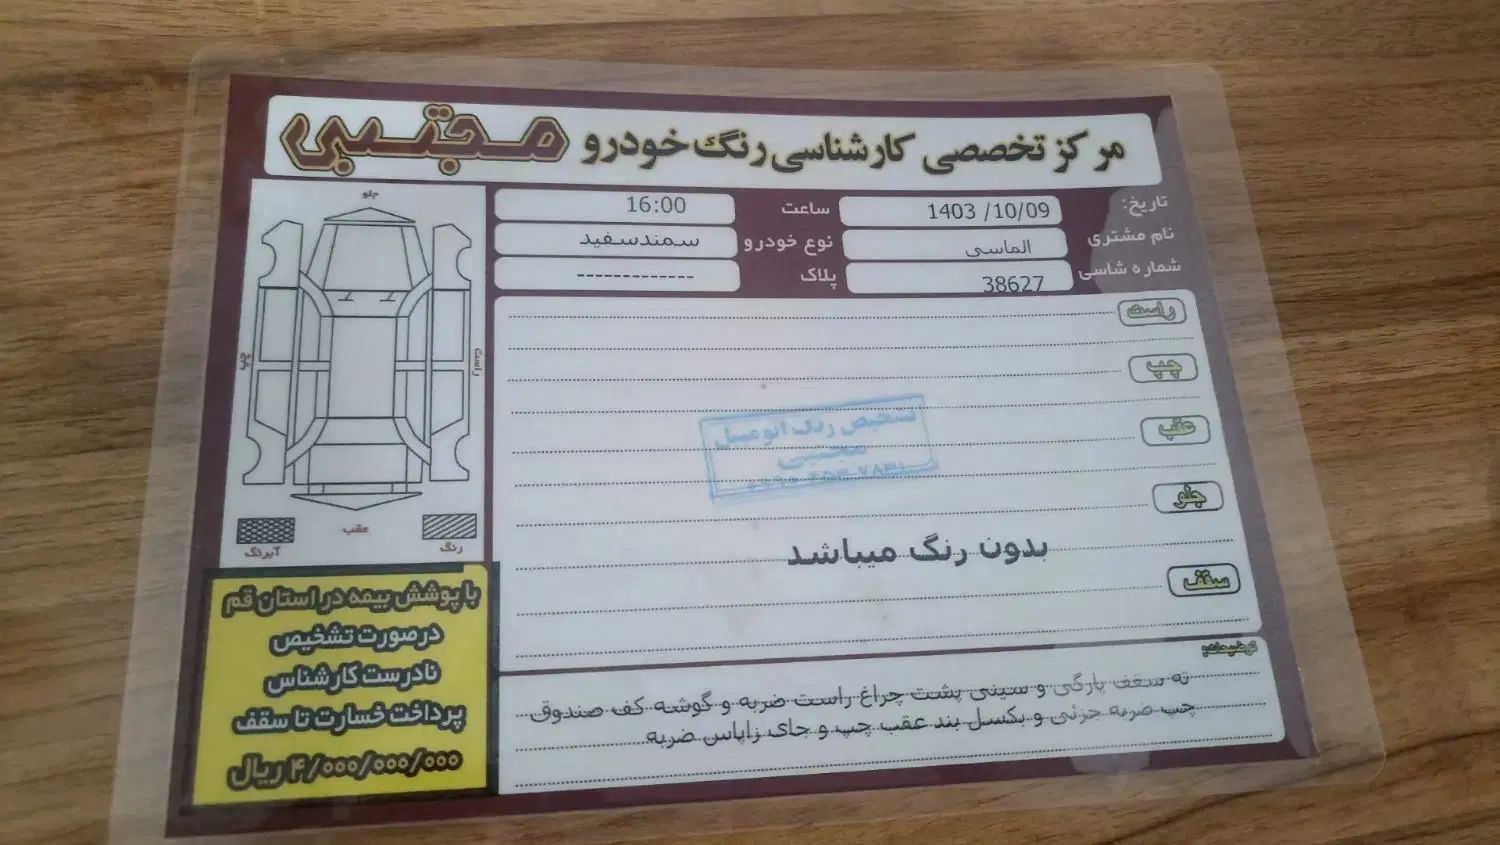 مرکز تخصصی کارشناسی رنگ خودرو مجتبی
تاریخ: 1403 /10/09 ساعت 16:00
نام مشتری الماسی نوع خودرو سمندسفید
شماره شاسی 38627 پلاک -------------
راست
چپ
عقب
جلو
بدون رنگ میباشد
سقف
تشخیص رنگ اتومبیل
مجتبی
توضیحات:
ته سقف پارگی و سینی پشت چراغ راست ضربه و گوشه کف صندوق
چپ ضربه جزئی و بکسل بند عقب چپ و جای زاپاس ضربه
جلو
چپ
راست
عقب
آبرنگ
رنگ
با پوشش بیمه در استان قم
درصورت تشخیص
نادرست کارشناس
پرداخت خسارت تا سقف
۴/۰۰۰/۰۰۰/۰۰۰ ریال